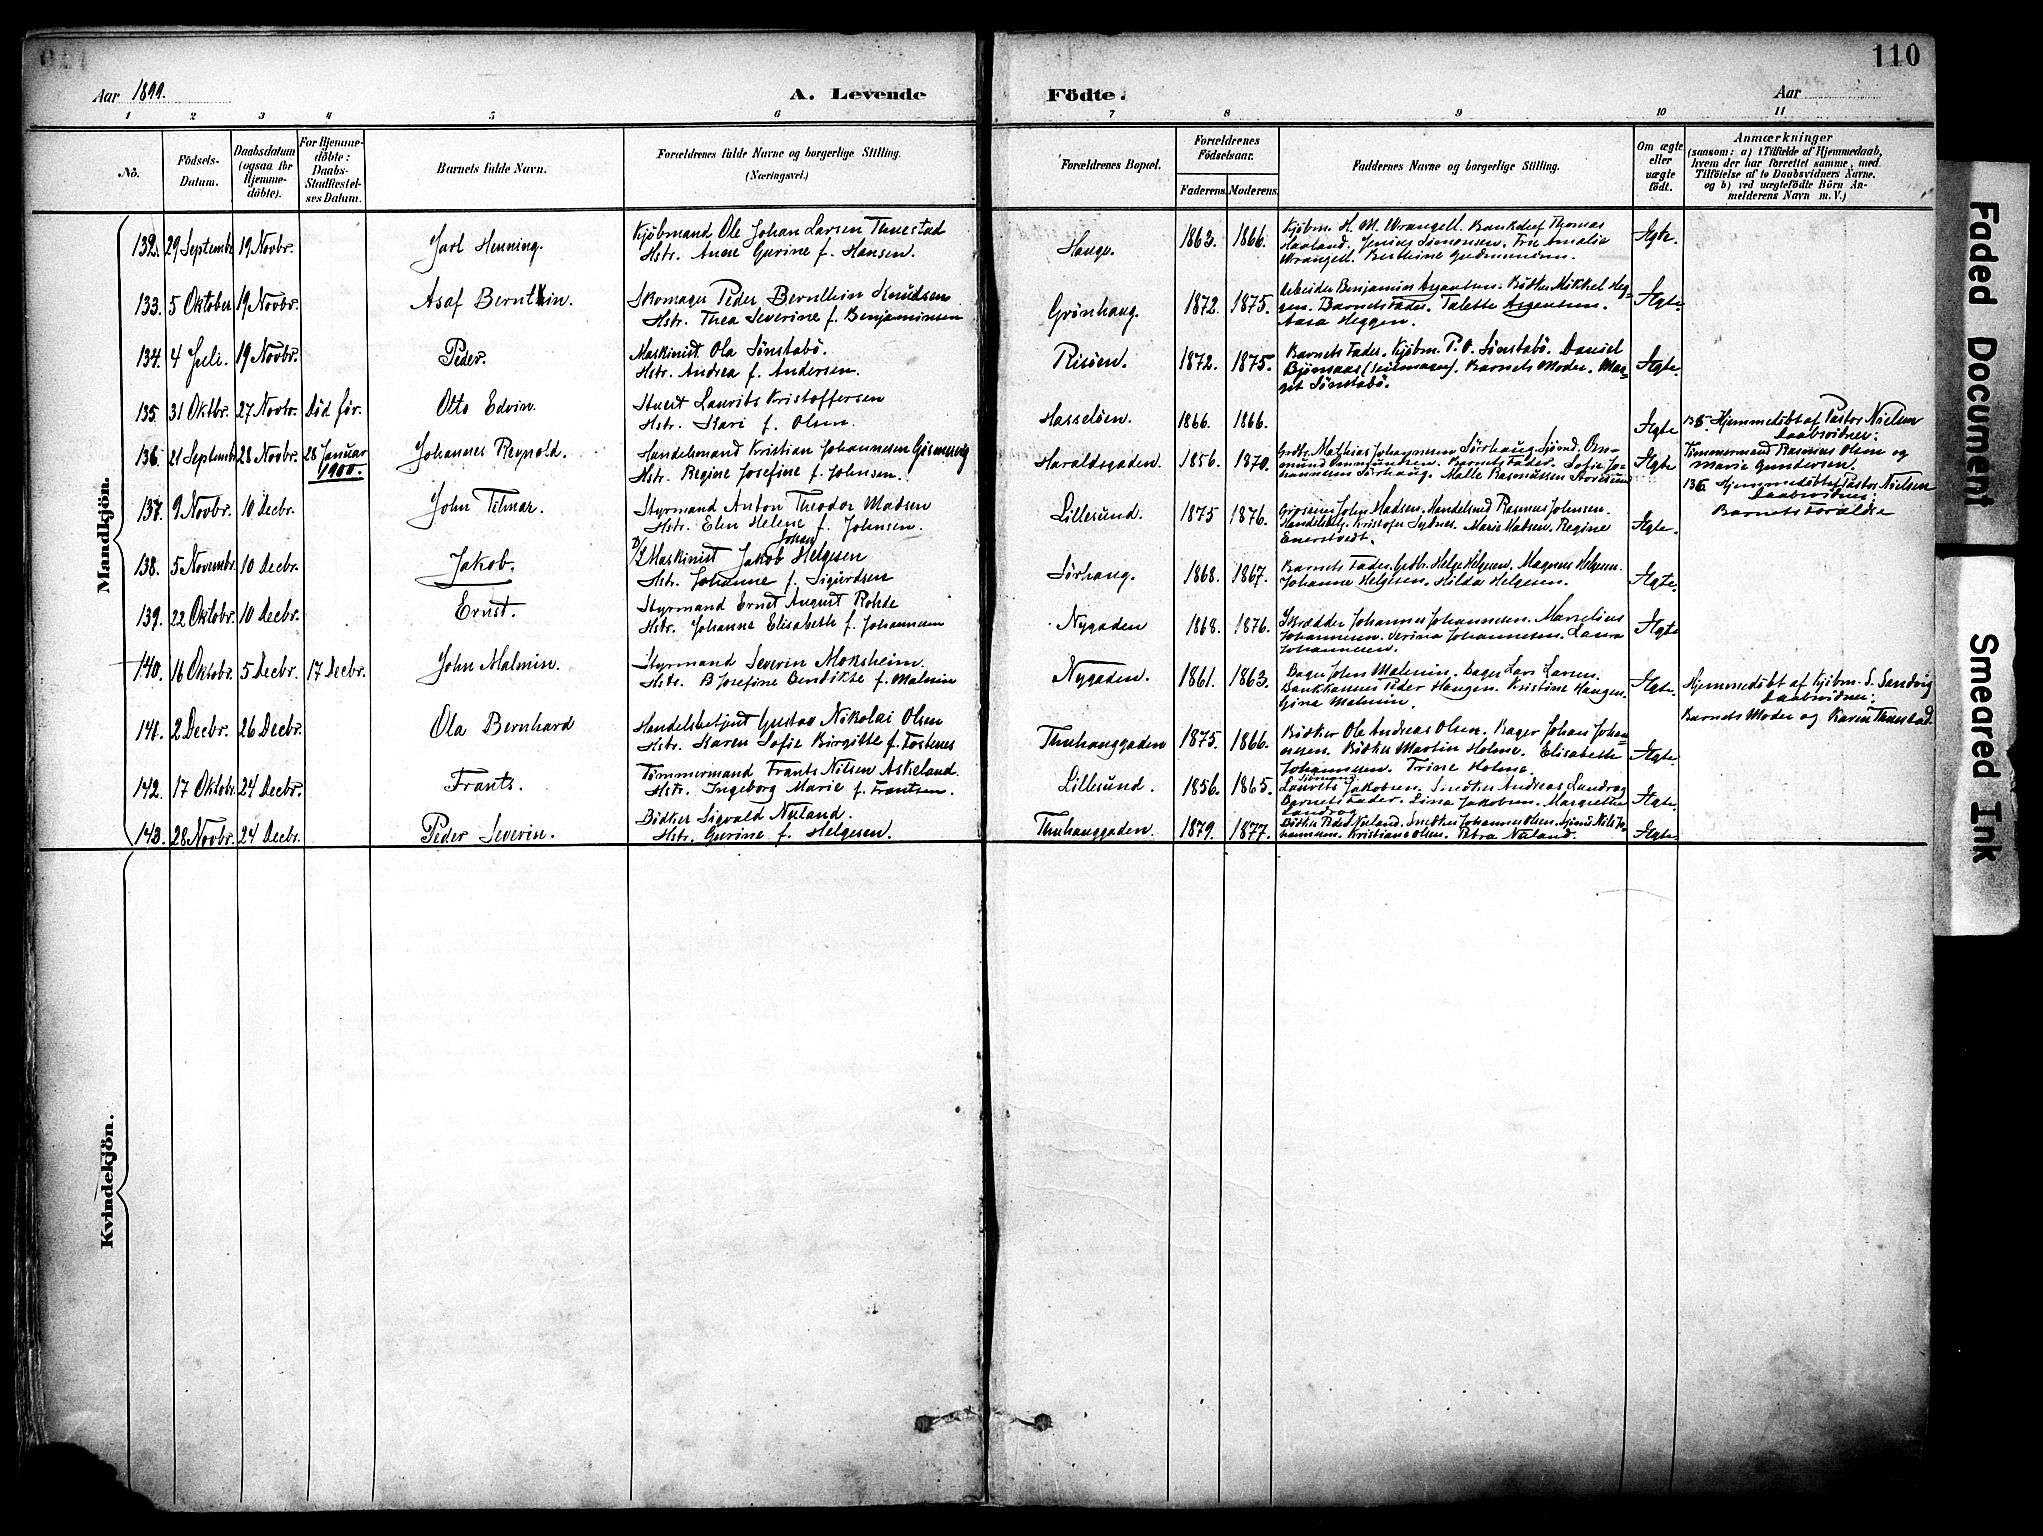 110
Aar 1899.
A. Levende Födte.
Aar
1 2 3 4 5 6 7 8 9 10 11
No.
Födsels-
Datum.
Daabsdatum
(ogsaa for
Hjemme-
döbte).
For Hjemme-
döbte:
Daabs-
Stadfæstel-
ses Datum.
Barnets fulde Navn.
Forældrenes fulde Navne og borgerlige Stilling.
(Næringsvei.)
Forældrenes Bopæl.
Forældrenes
Födselsaar.
Faderens. Moderens.
Faddernes Navne og borgerlige Stilling.
Om ægte
eller
uægte
födt.
Anmærkninger
(saasom: a) i Tilfælde af Hjemmedaab,
hvem der har forrettet samme, med
Tilföielse af to Daabsvidners Navne.
og b) ved uægtefödte Börn An-
melderens Navn m. V.)
Mandkjön.
132. 29 Septembr 19 Novbr. Jarl Henning. Kjøbmand Ole Johan Larsen Thuestad
Hstr. Anne Gurine f. Hansen.
Hauge. 1863. 1866.
Kjøbm. H. M. Wrangell. Bankchef Thomas
Haaland. Simonsen. Fru Amalie
Wrangell. Berthine Gudmunsen.
Ægte.
133. 5 Oktober 19 Novbr. Asaf Bernthin. Skomager Peder Bernthin Knudsen
Hstr. Thea Severine f. Benjaminsen
Grønhaug. 1872. 1875.
Arbeider Benjamin Aegentsen. Bødker Mikkel Heg-
gen. Barnets Fader. Talette Aegentsen.
Aasa Heggen.
Ægte.
134. 4 Juli. 19 Novbr. Peder. Maskinist Ola Sønstabö.
Hstr. Andrea f. Andersen.
Risøen. 1872. 1875.
Barnets Fader. Kjøbm. P. O. Sønstabö. Daniel
Bjørnaas (Seilmager). Barnets Moder. Mar-
get Sønstabö.
Ægte.
135. 31 Oktbr. 27 Novbr. Død før. Otto Edvin. Stuert Laurits Kristoffersen
Hstr. Kari f. Olsen.
Hasseløen. 1866. 1866.
Ægte
135. Hjemmedøbt af Pastor Nielsen
Daabsvidner:
Tømmermand Rasmus Olsen og
Marie Gundersen.
136. 21 Septembr 28 Novbr. 28 Januar
1900. Johannes Reynold. Handelsmand Kristian Johannesen
Hstr. Regine Josefine f. Johnsen.
Haraldsgaden. 1856. 1870.
Grdbr. Mathias Johannesen Sørhaug. Sjömd. Om-
mund Ommundsen. Barnets Fader. Sofie Jo-
hannesen Sørhaug. Malle Rasmussen Storesund
Ægte
136. Hjemmedøbt af Pastor Nielsen
Daabsvidner:
Barnets Forældre
137. 9 Novbr. 10 Decbr. John Tilmar. Styrmand Anton Theodor Madsen
Hstr. Elen Helene f. Johnsen.
Lillesund. 1875 1876.
John Madsen. Handelsmd Rasmus Johnsen.
Handelsbetj. Kristofer Sydnes. Marie Madsen. Regine
Enerstvedt.
Ægte.
138. 5 Novembr. 10 Decbr. Jakob. Maskinist Jakob Johan Helgesen
Hstr. Johanne f. Sigurdsen
Sørhaug. 1868. 1867.
Barnets Fader. Grdbr. Helge Helgesen. Magnus Helgesen.
Johanne Helgesen. Hilda Helgesen.
Ægte.
139. 22 Oktobr. 10 Decbr. Ernst. Styrmand Ernst August Rohde
Hstr. Johanne Elisabeth f. Johannesen
Nygaden 1868. 1876.
Skrædder Johannes Johannesen. Marselius
Johannesen. Serina Johannesen. Laura
Johannesen.
Ægte
140. 16 Oktobr. 5 Decbr. 17 Decbr. John Malmin. Styrmand Severin Moksheim.
Hstr. B Josefine Bendikte f. Malmin
Nygaden. 1861. 1863.
Bager John Malmin. Bager Lars Larsen.
Peder Haugen. Kristine Haugen.
Gina Malmin.
Ægte.
Hjemmedøbt af Kjøbm. S. Sandvig
Daabsvidner:
Barnets Moder og Karen Thuestad.
141. 2 Decbr. 26 Decbr. Ola Bernhard Handelsbetjent Gustav Nikolai Olsen
Hstr. Karen Sofie Birgitte f. Tostenes
Thuhauggaden 1875. 1866.
Bødker Ole Andreas Olsen. Bager Johan Johan-
nesen. Bødker Martin Holme. Elisabeth
Johannesen. Trine Holme.
Ægte.
142. 17 Oktobr. 24 Decbr. Frants. Tømmermand Frants Nilsen Askeland.
Hstr. Ingeborg Marie f. Frantsen.
Lillesund. 1856. 1865.
Laurits Jakobsen. Snedker Andreas Landrog
Barnets Fader. Lina Jakobsen. Margrethe
Landrog
Ægte.
143. 28 Novbr. 24 Decbr. Peder Severin. Bødker Sigvald Nuland.
Hstr. Gurine f. Helgesen.
Thuhauggaden. 1879. 1877.
Bødker Peder Nuland. Snedker Johannes Olsen.
Kristiane Olsen. Petra Nuland.
Ægte.
Kvindekjön.
Faded Document
Smeared Ink